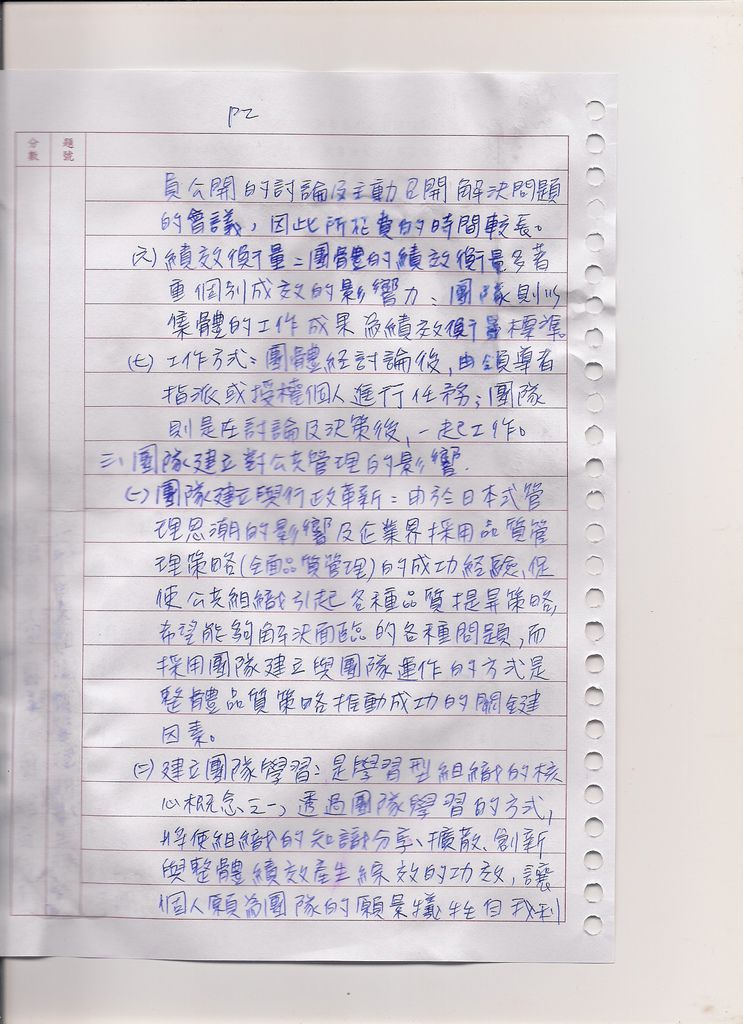 P2
分數
題號
員公開的討論及主動召開解決問題
的會議，因此所花費的時間較長。
(六) 績效衡量：團體的績效衡量多著
重個別成效的影響力；團隊則以
集體的工作成果為績效衡量標準。
(七) 工作方式：團體經討論後，由領導者
指派或授權個人進行任務；團隊
則是在討論及決策後，一起工作。
三、團隊建立對公共管理的影響.
(一) 團隊建立與行政革新：由於日本式管
理思潮的影響及企業界採用品質管
理策略(全面品質管理)的成功經驗，促
使公共組織引起各種品質提昇策略，
希望能夠解決面臨的各種問題，而
採用團隊建立與團隊運作的方式是
整體品質策略推動成功的關鍵
因素。
(二) 建立團隊學習：是學習型組織的核
心概念之一，透過團隊學習的方式，
將使組織的知識分享、擴散、創新
與整體績效產生綜效的功效，讓
個人願為團隊的願景犧牲自我利